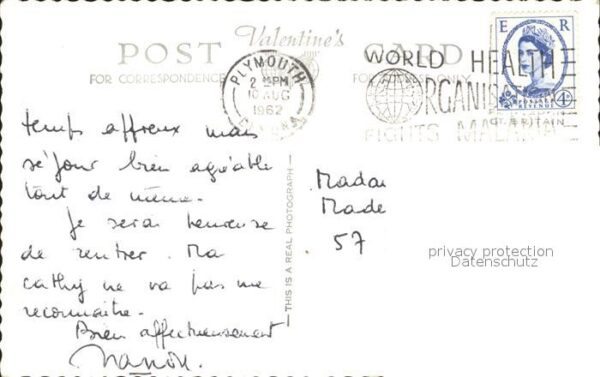 Valentine's
POST CARD
FOR CORRESPONDENCE
FOR ADDRESS ONLY
PLYMOUTH
2 PM
10 AUG
1962
WORLD HEALTH
ORGANISATION
FIGHTS MALARIA
E R
4D
GT. BRITAIN
temps affreux mais
séjour bien agréable
tout de même.
Je serai heureuse
de rentrer. Ma
cathy ne va pas me
reconnaitre.
Bien affectueusement
THIS IS A REAL PHOTOGRAPH
Madam
Made
57
privacy protection
Datenschutz